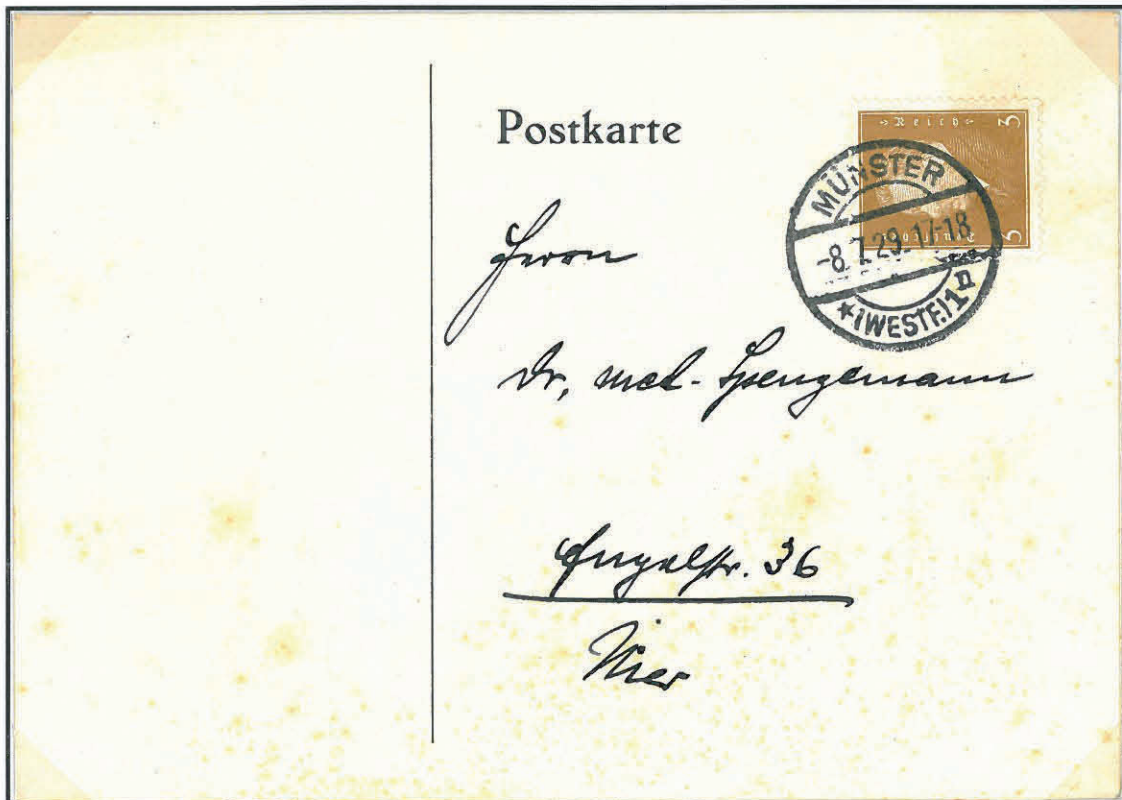 Postkarte
Reich 3
3
MÜNSTER
-8.7.29.17-18
*(WESTF.)1
Herrn
Dr. med. Spengemann
Engelstr. 36
Hier